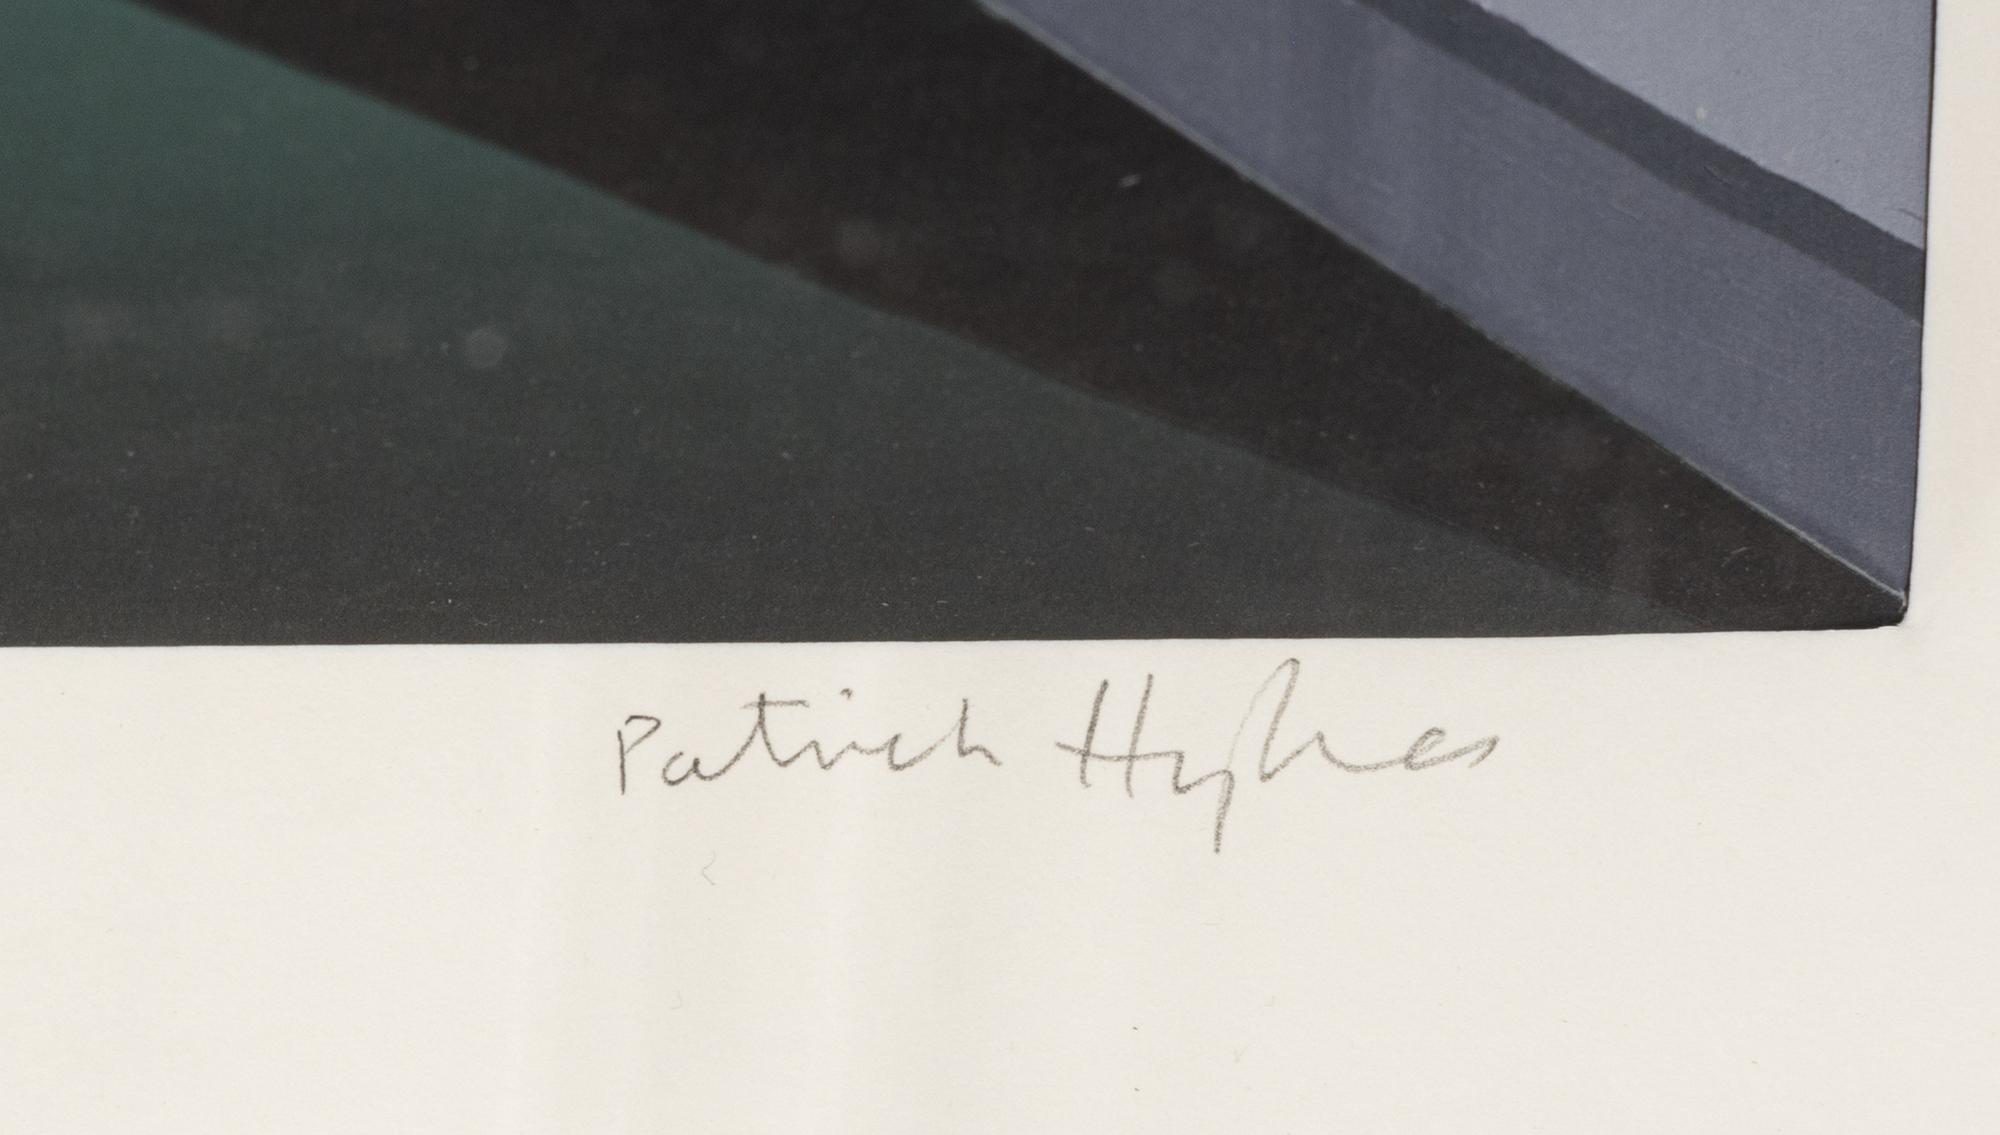 Patrick Hughes